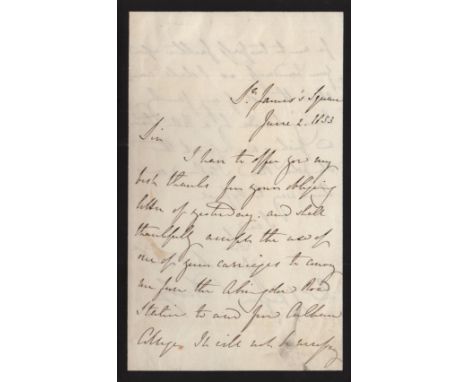 St. James's Square
June 2. 1853
Sir
I have to offer you my
best thanks for your obliging
letter of yesterday. and shall
thankfully accept the use of
one of your carriages to convey
me from the Abingdon Road
Station to and from Culham
College. It will not be necessary